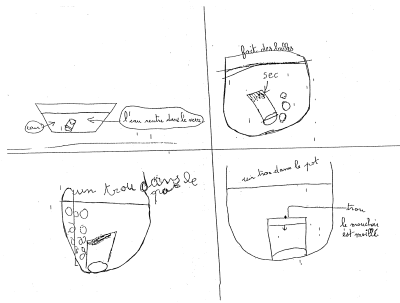 eau
l'eau rentre dans le verre
fait des bulles
sec
un trou dans le
pot
un trou dans le pot
trou
le mouchoir
est mouillé